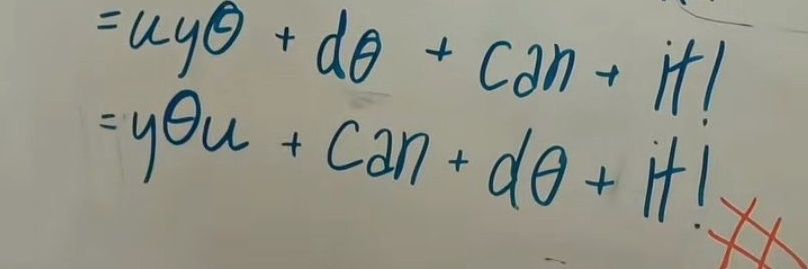 =uyθ + dθ + can + it!
=yθu + can + dθ + it!